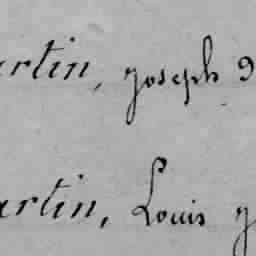 artin, joseph
artin, Louis